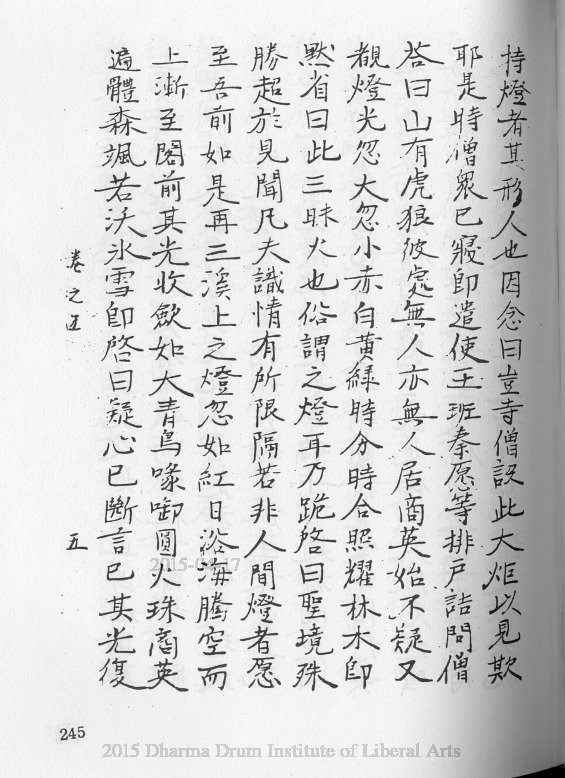 持燈者其形人也因念曰豈寺僧設此大炬以見欺
耶是時僧衆已寢即遣使王班秦愿等排戶詰問僧
荅曰山有虎狼彼處無人亦無人居商英始不疑又
覩燈光忽大忽小赤白黄緑時分時合照耀林木即
黙省曰此三昧火也俗謂之燈耳乃跪啓曰聖境殊
勝超於見聞凡夫識情有所限隔若非人間燈者愿
至吾前如是再三溪上之燈忽如紅日浴海騰空而
上漸至閣前其光收歛如大青鳥喙啣圓火珠商英
遍體森颯若沃氷雪即啓曰疑心已斷言已其光復
卷之五
五
245
2015 Dharma Drum Institute of Liberal Arts